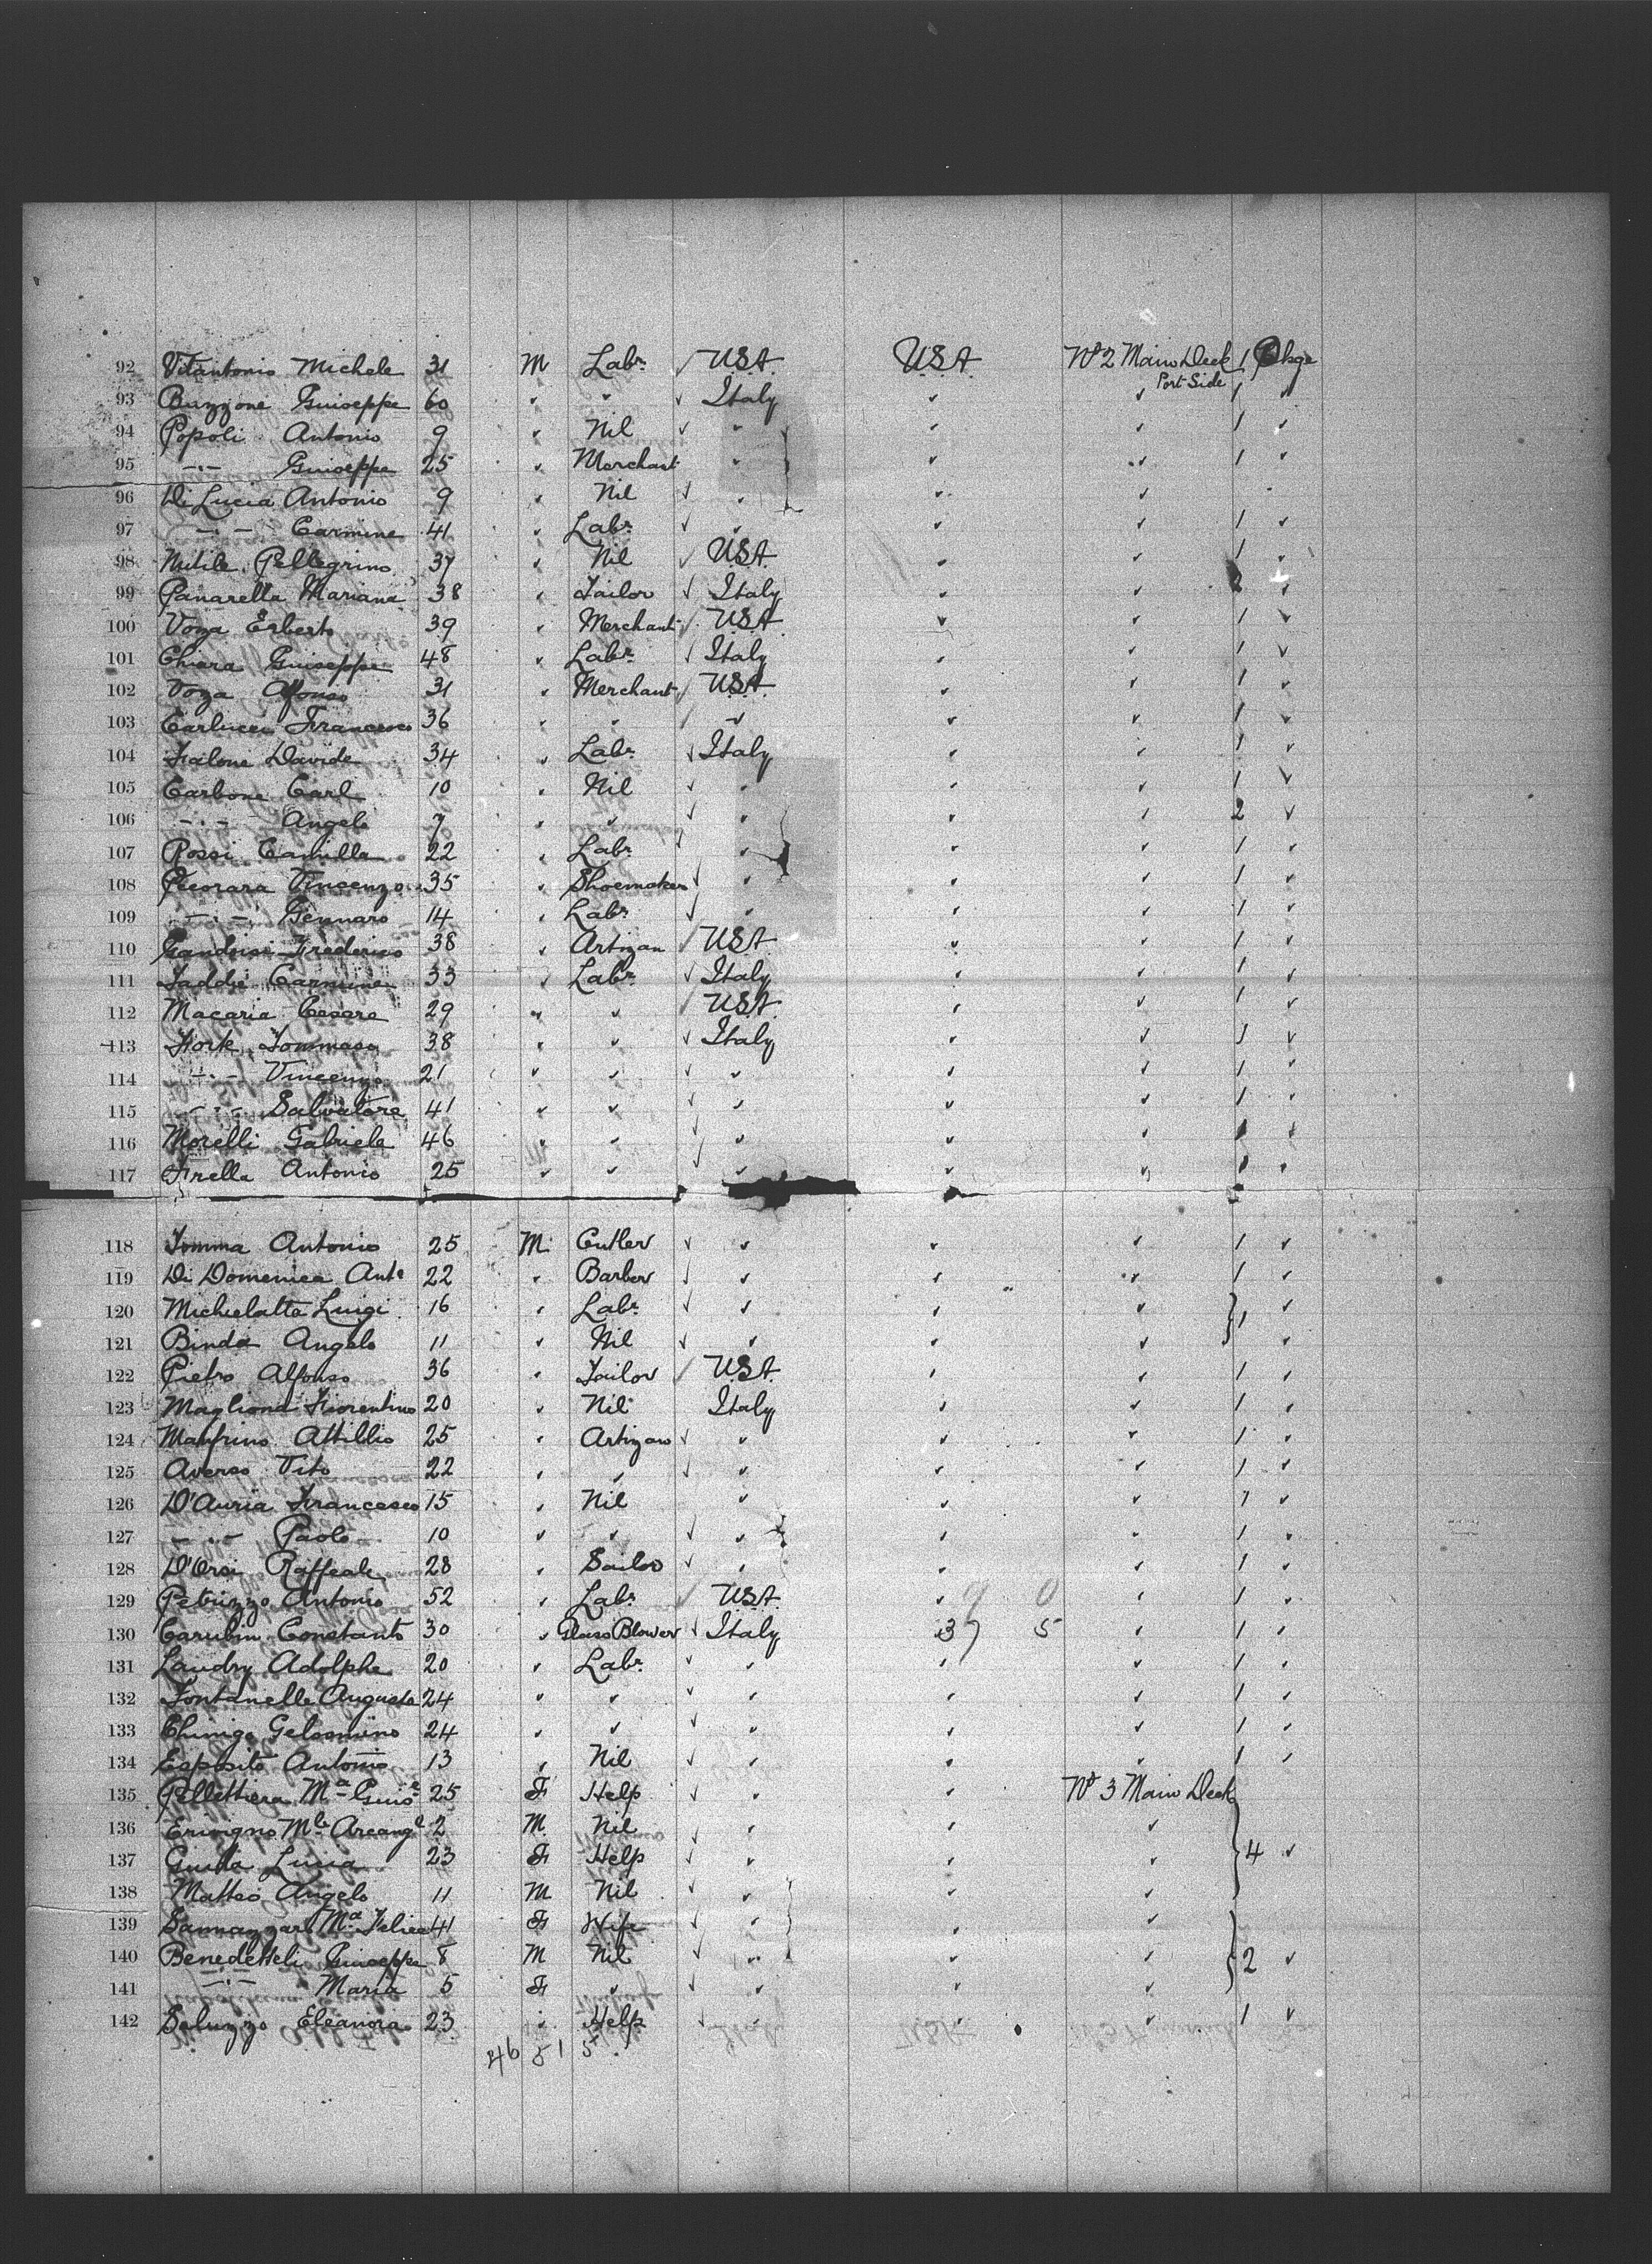 92 Vitantonio Michele 31 M Labr ✓ U.S.A. U.S.A. No 2 Main Deck 1 Pkge
Port Side
93 Buzzone Guiseppe 60 " " ✓ Italy " " 1 "
94 Popoli Antonio 9 " Nil ✓ " " " 1 "
95 -"- Guiseppe 25 " Merchant " " " 1 "
96 Di Lucia Antonio 9 " Nil ✓ " " "
97 -"- Carmine 41 " Labr ✓ " " " 1 "
98 Nutile Pellegrino 37 " Nil ✓ U.S.A. " " 1 "
99 Panarella Mariana 38 " Tailor ✓ Italy " " 2 "
100 Voza Erberto 39 " Merchant ✓ U.S.A. " " 1 "
101 Chiara Guiseppe 48 " Labr ✓ Italy " " 1 "
102 Voza Alfonso 31 " Merchant ✓ U.S.A. " " 1 "
103 Carlucci Francesco 36 " " ✓ " " " 1 "
104 Falone Davide 34 " Labr ✓ Italy " " 1 "
105 Carbone Carl 10 " Nil ✓ " " " 1 "
106 -"- Angelo 7 " " ✓ " " " 2 "
107 Rossi Camilla 22 " Labr ✓ " " " 1 "
108 Pecorara Vincenzo 35 " Shoemaker ✓ " " " 1 "
109 -"- Gennaro 14 " Labr ✓ " " " 1 "
110 Frederico 38 " Artizan ✓ U.S.A. " " 1 "
111 Taddie Carmine 33 " Labr ✓ Italy " " 1 "
112 Macaria Cesare 29 " " ✓ U.S.A. " " 1 "
113 Fiork Tommaso 38 " " ✓ Italy " " 1 "
114 -"- Vincenzo 21 " " ✓ " " " 1 "
115 -"- Salvatore 41 " " ✓ " " " 1 "
116 Morelli Gabriele 46 " " ✓ " " " 1 "
117 Firella Antonio 25 " " ✓ " " " 1 "
118 Tomma Antonio 25 M Cutler ✓ " " " 1 "
119 Di Domenica Anto 22 " Barber ✓ " " " 1 "
120 Michelatta Luigi 16 " Labr ✓ " " " } 1 "
121 Binda Angelo 11 " Nil ✓ " " " "
122 Pietro Alfonso 36 " Tailor ✓ U.S.A. " " 1 "
123 Magliona Fiorentino 20 " Nil Italy " " 1 "
124 Manfrino Attillio 25 " Artizan ✓ " " " 1 "
125 Averso Vito 22 " " ✓ " " " 1 "
126 D'Auria Francesco 15 " Nil " " " 1 "
127 -"- Paolo 10 " " ✓ " " " 1 "
128 D'Orsi Raffeale 28 " Sailor ✓ " " " 1 "
129 Petruzzo Antonio 52 " Labr ✓ U.S.A. " 9 0 " 1 "
130 Carubin Constanto 30 " Glass Blower ✓ Italy 37 5 " 1 "
131 Laudry Adolphe 20 " Labr ✓ " " " 1 "
132 Fontanella Augusta 24 " " ✓ " " " 1 "
133 Chinigo Gelosmino 24 " " ✓ " " " 1 "
134 Esposito Antonio 13 " Nil ✓ " " " 1 "
135 Pellettiera Ma Guise 25 F Help ✓ " " No 3 Main Deck
136 Mle Arcangl 2 M Nil ✓ " " "
137 Guida Lucia 23 F Help ✓ " " " } 4 "
138 Matteo Angelo 11 M Nil ✓ " " "
139 Sannazzaro Ma Felica 41 F Wife ✓ " " "
140 Benedetteli Guiseppe 8 M Nil ✓ " " " } 2 "
141 -"- Maria 5 F " ✓ " " "
142 Saluzzo Eleanora 23 " Help ✓ " " " 1 "
46 51 5